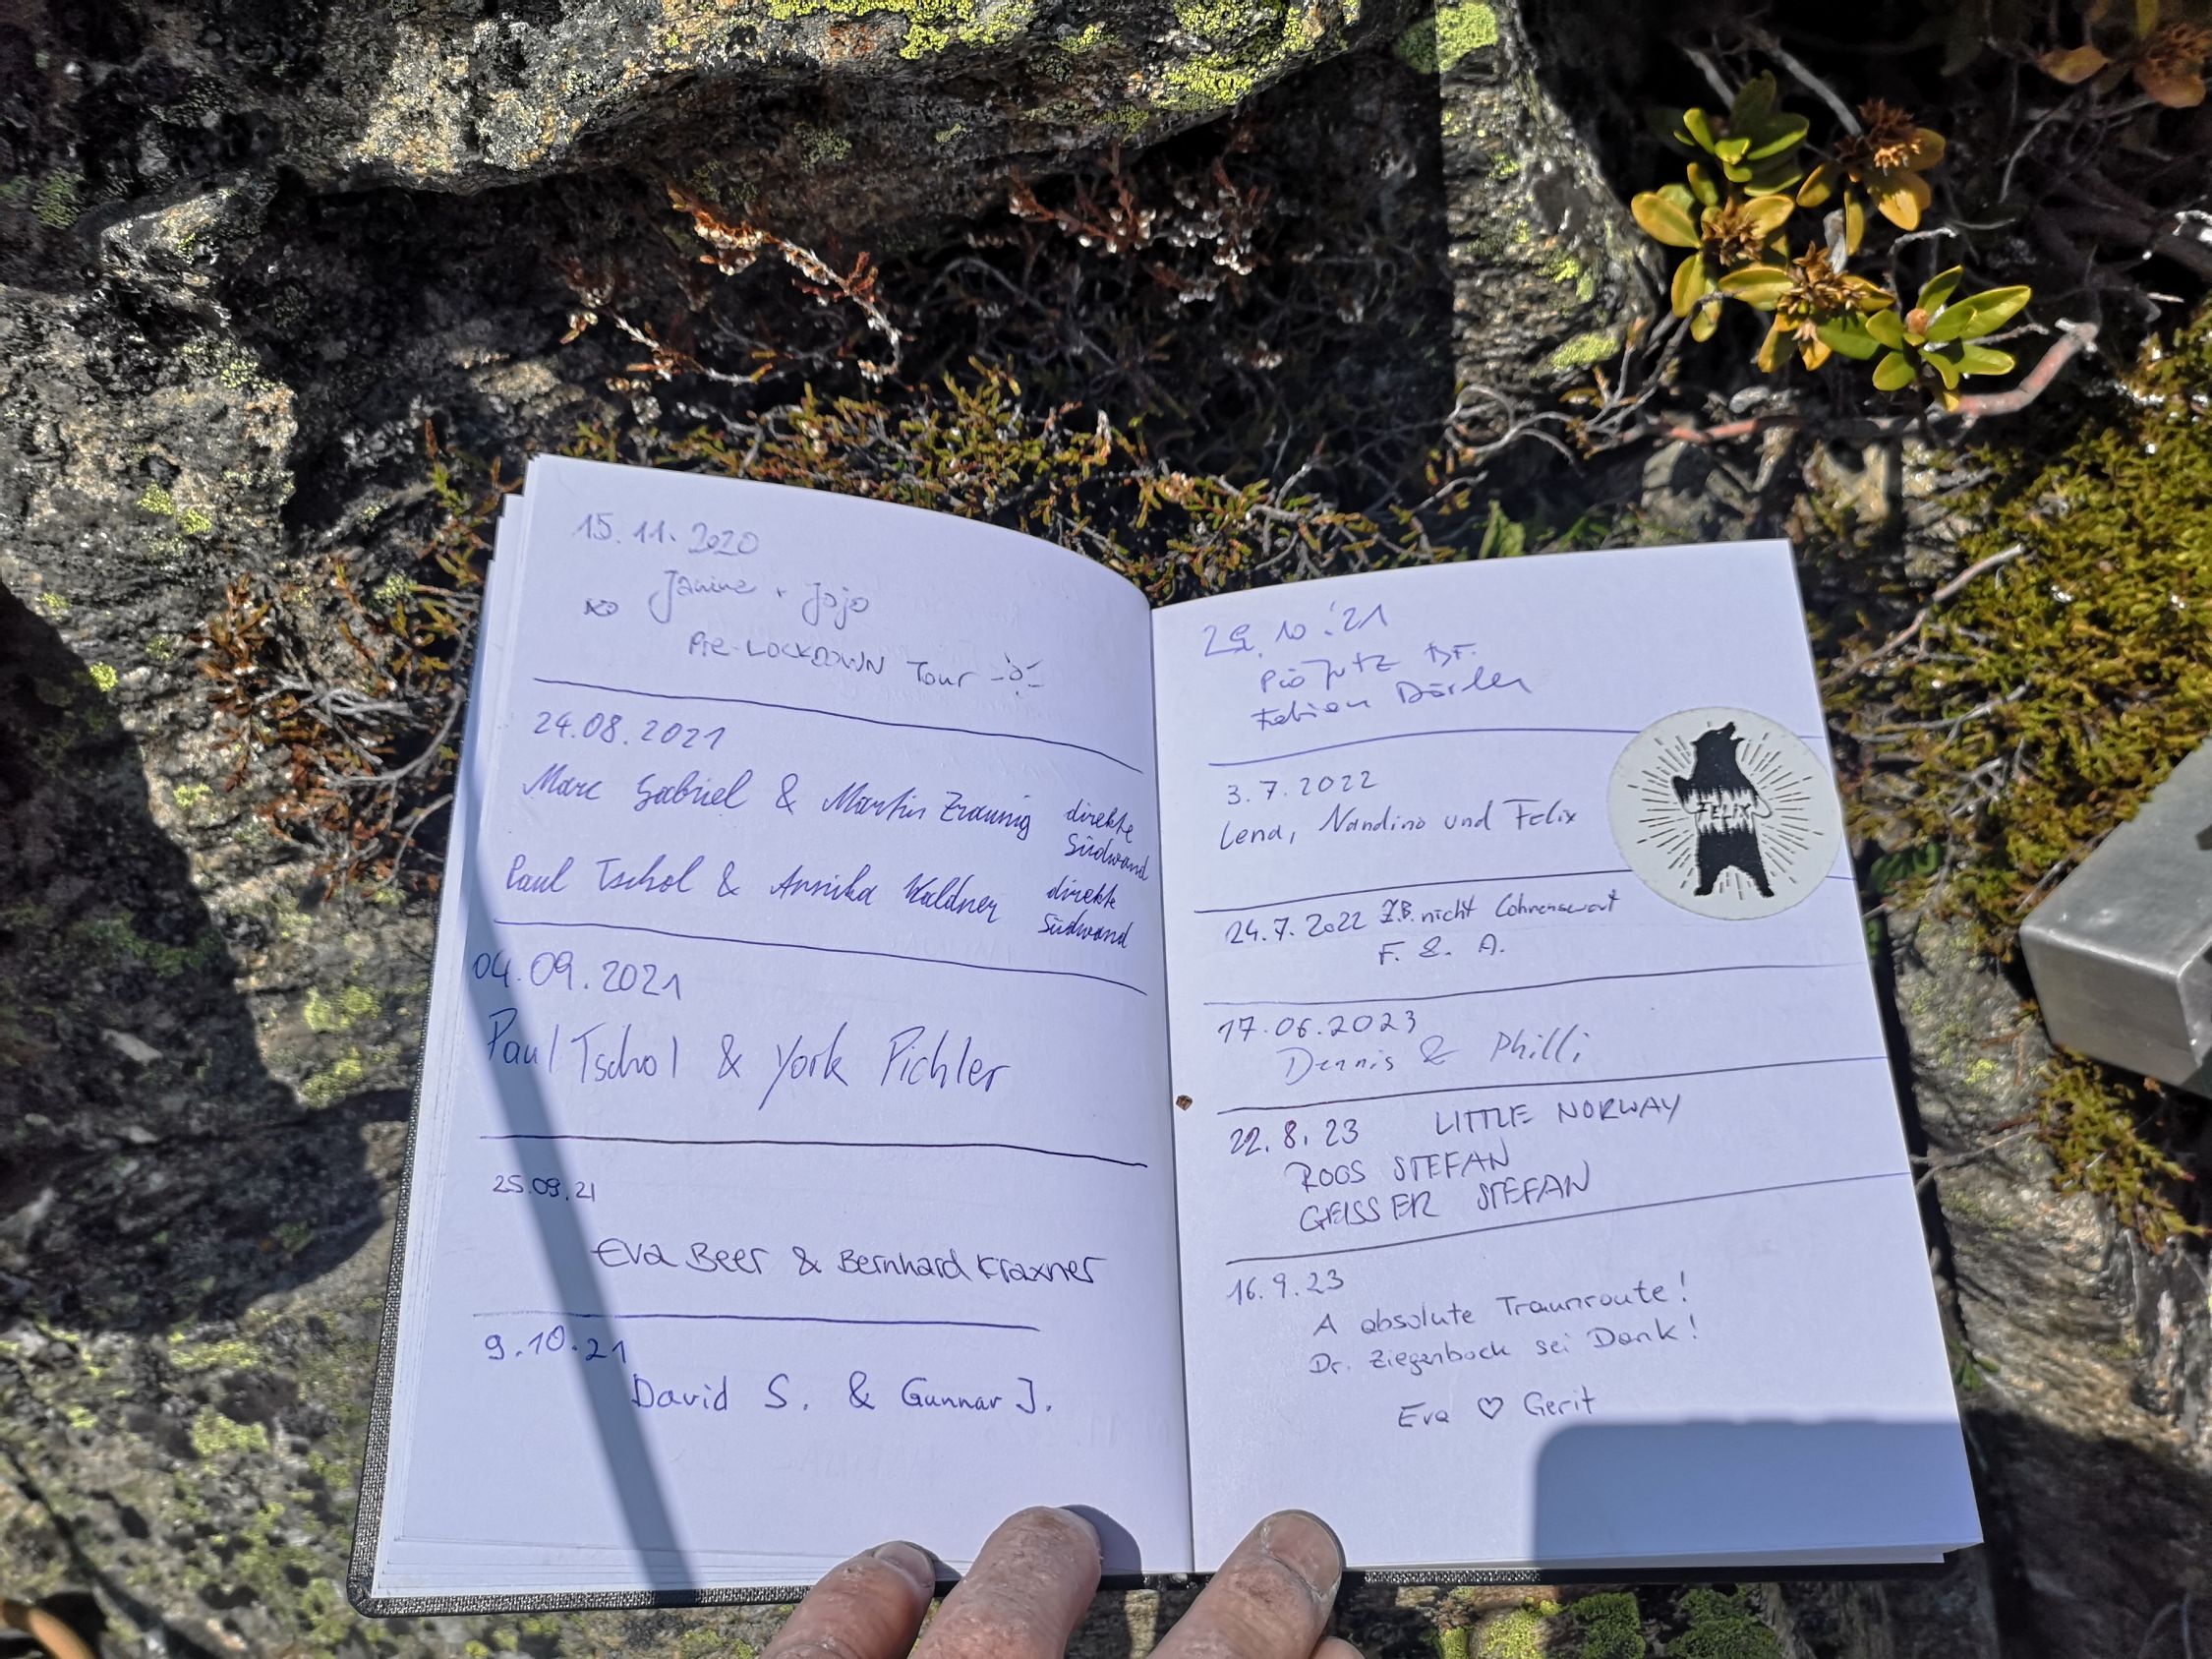 15.11.2020
Janine + Jojo
Pre-LOCKDOWN Tour
24.08.2021
Marc Gabriel & Martin Zraunig direkte Südwand
Paul Tschol & Annika Waldner direkte Südwand
04.09.2021
Paul Tschol & York Pichler
25.09.21
Eva Beer & Bernhard Kraxner
9.10.21
David S. & Gunnar J.
29.10.'21
Pio Jutz
Fabian Dörler
3.7.2022
Lena, Nandino und Felix
FELIX
24.7.2022 Z.B. nicht
F. & A.
17.06.2023
Dennis & Philli
22.8.23 LITTLE NORWAY
ROOS STEFAN
GEISSER STEFAN
16.9.23
A absolute Traumroute!
Dr. Ziegenbock sei Dank!
Eva ♡ Gerit